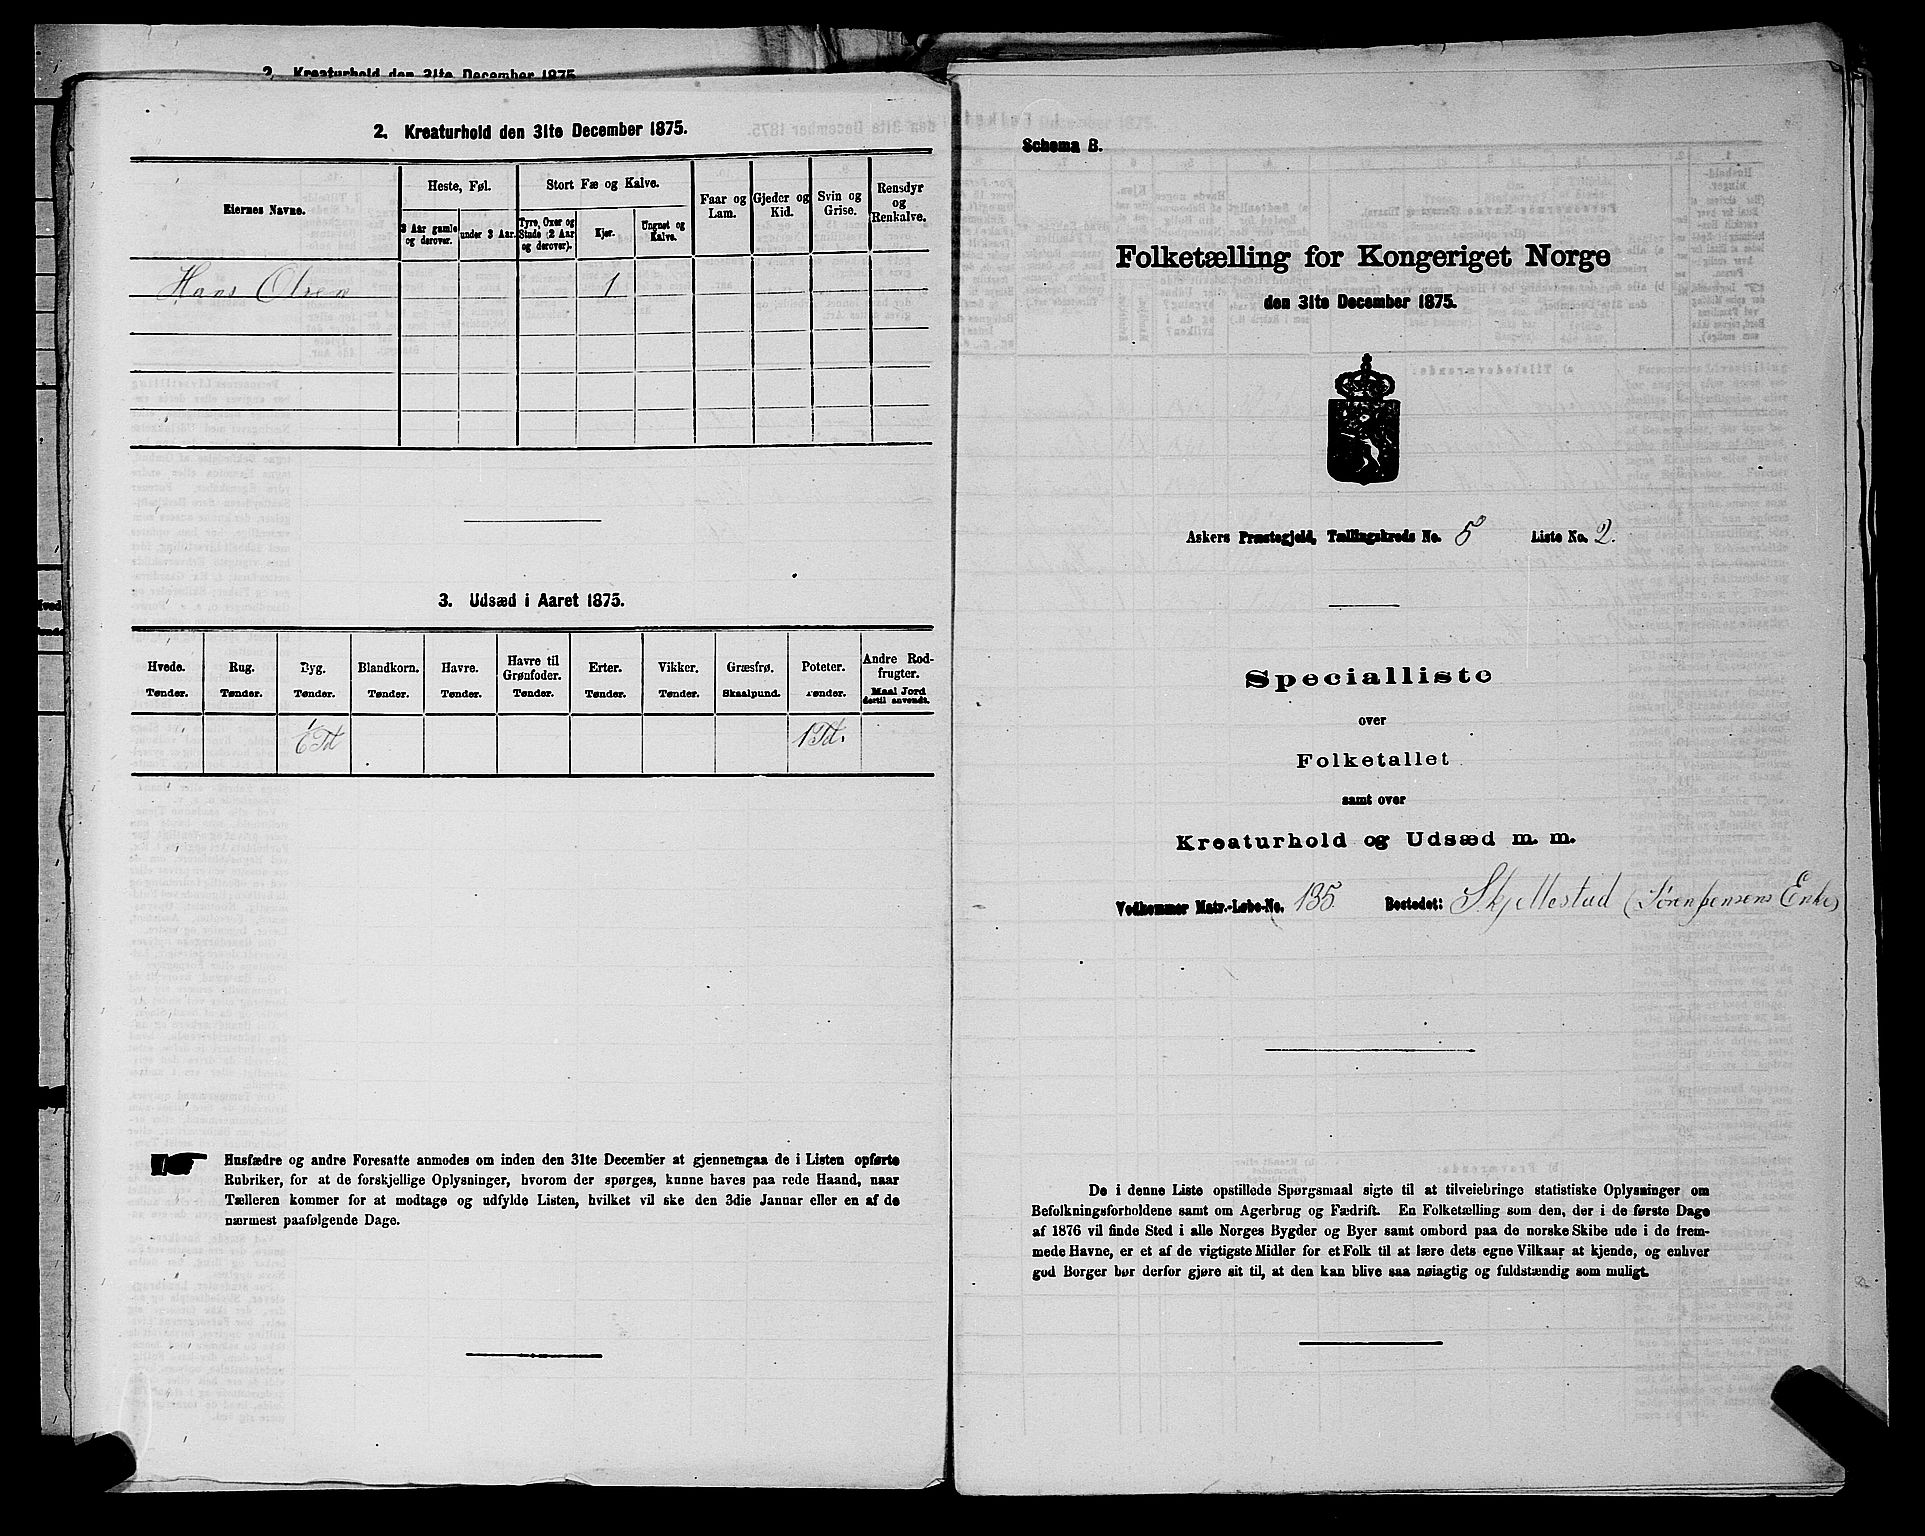 2. Kreaturhold den 31te December 1875.
2. Kreaturhold den 31te December 1875.
Eiernes Navne.
Heste, Føl.
Stort Fæ og Kalve.
Faar og Lam.
Gjeder og Kid.
Svin og Grise.
Rensdyr og Renkalve.
3 Aar gamle og derover.
under 3 Aar.
Tyre, Oxer og Stude (2 Aar og derover).
Kjør.
Ungnet og Kalve.
Hans Olsen 1
3. Udsæd i Aaret 1875.
Hvede. Rug. Byg. Blandkorn. Havre. Havre til Grønfoder. Erter. Vikker. Græsfrø. Poteter. Andre Rodfrugter.
Tønder. Tønder. Tønder. Tønder. Tønder. Tønder. Tønder. Tønder. Skaalpund. Tønder. Maal Jord dertil anvendt.
Td 1 Td.
Husfædre og andre Foresatte anmodes om inden den 31te December at gjennemgaa de i Listen opførte
Rubriker, for at de forskjellige Oplysninger, hvorom der spørges, kunne haves paa rede Haand, naar
Tælleren kommer for at modtage og udfylde Listen, hvilket vil ske den 3die Januar eller en af de
nærmest paafølgende Dage.
Schema B.
Folketælling for Kongeriget Norge
den 31te December 1875.
Askers Præstegjeld, Tællingskreds No. 5 Liste No. 2.
Specialliste
over
Folketallet
samt over
Kreaturhold og Udsæd m. m.
Vedkommer Matr.-Løbe-No. 135. Bostedet: Skjellestad (Søren Jensens Enke)
De i denne Liste opstillede Spørgsmaal sigte til at tilveiebringe statistiske Oplysninger om
Befolkningsforholdene samt om Agerbrug og Fædrift. En Folketælling som den, der i de første Dage
af 1876 vil finde Sted i alle Norges Bygder og Byer samt ombord paa de norske Skibe ude i de frem-
mede Havne, er et af de vigtigste Midler for et Folk til at lære dets egne Vilkaar at kjende, og enhver
god Borger bør derfor gjøre sit til, at den kan blive saa nøiagtig og fuldstændig som muligt.